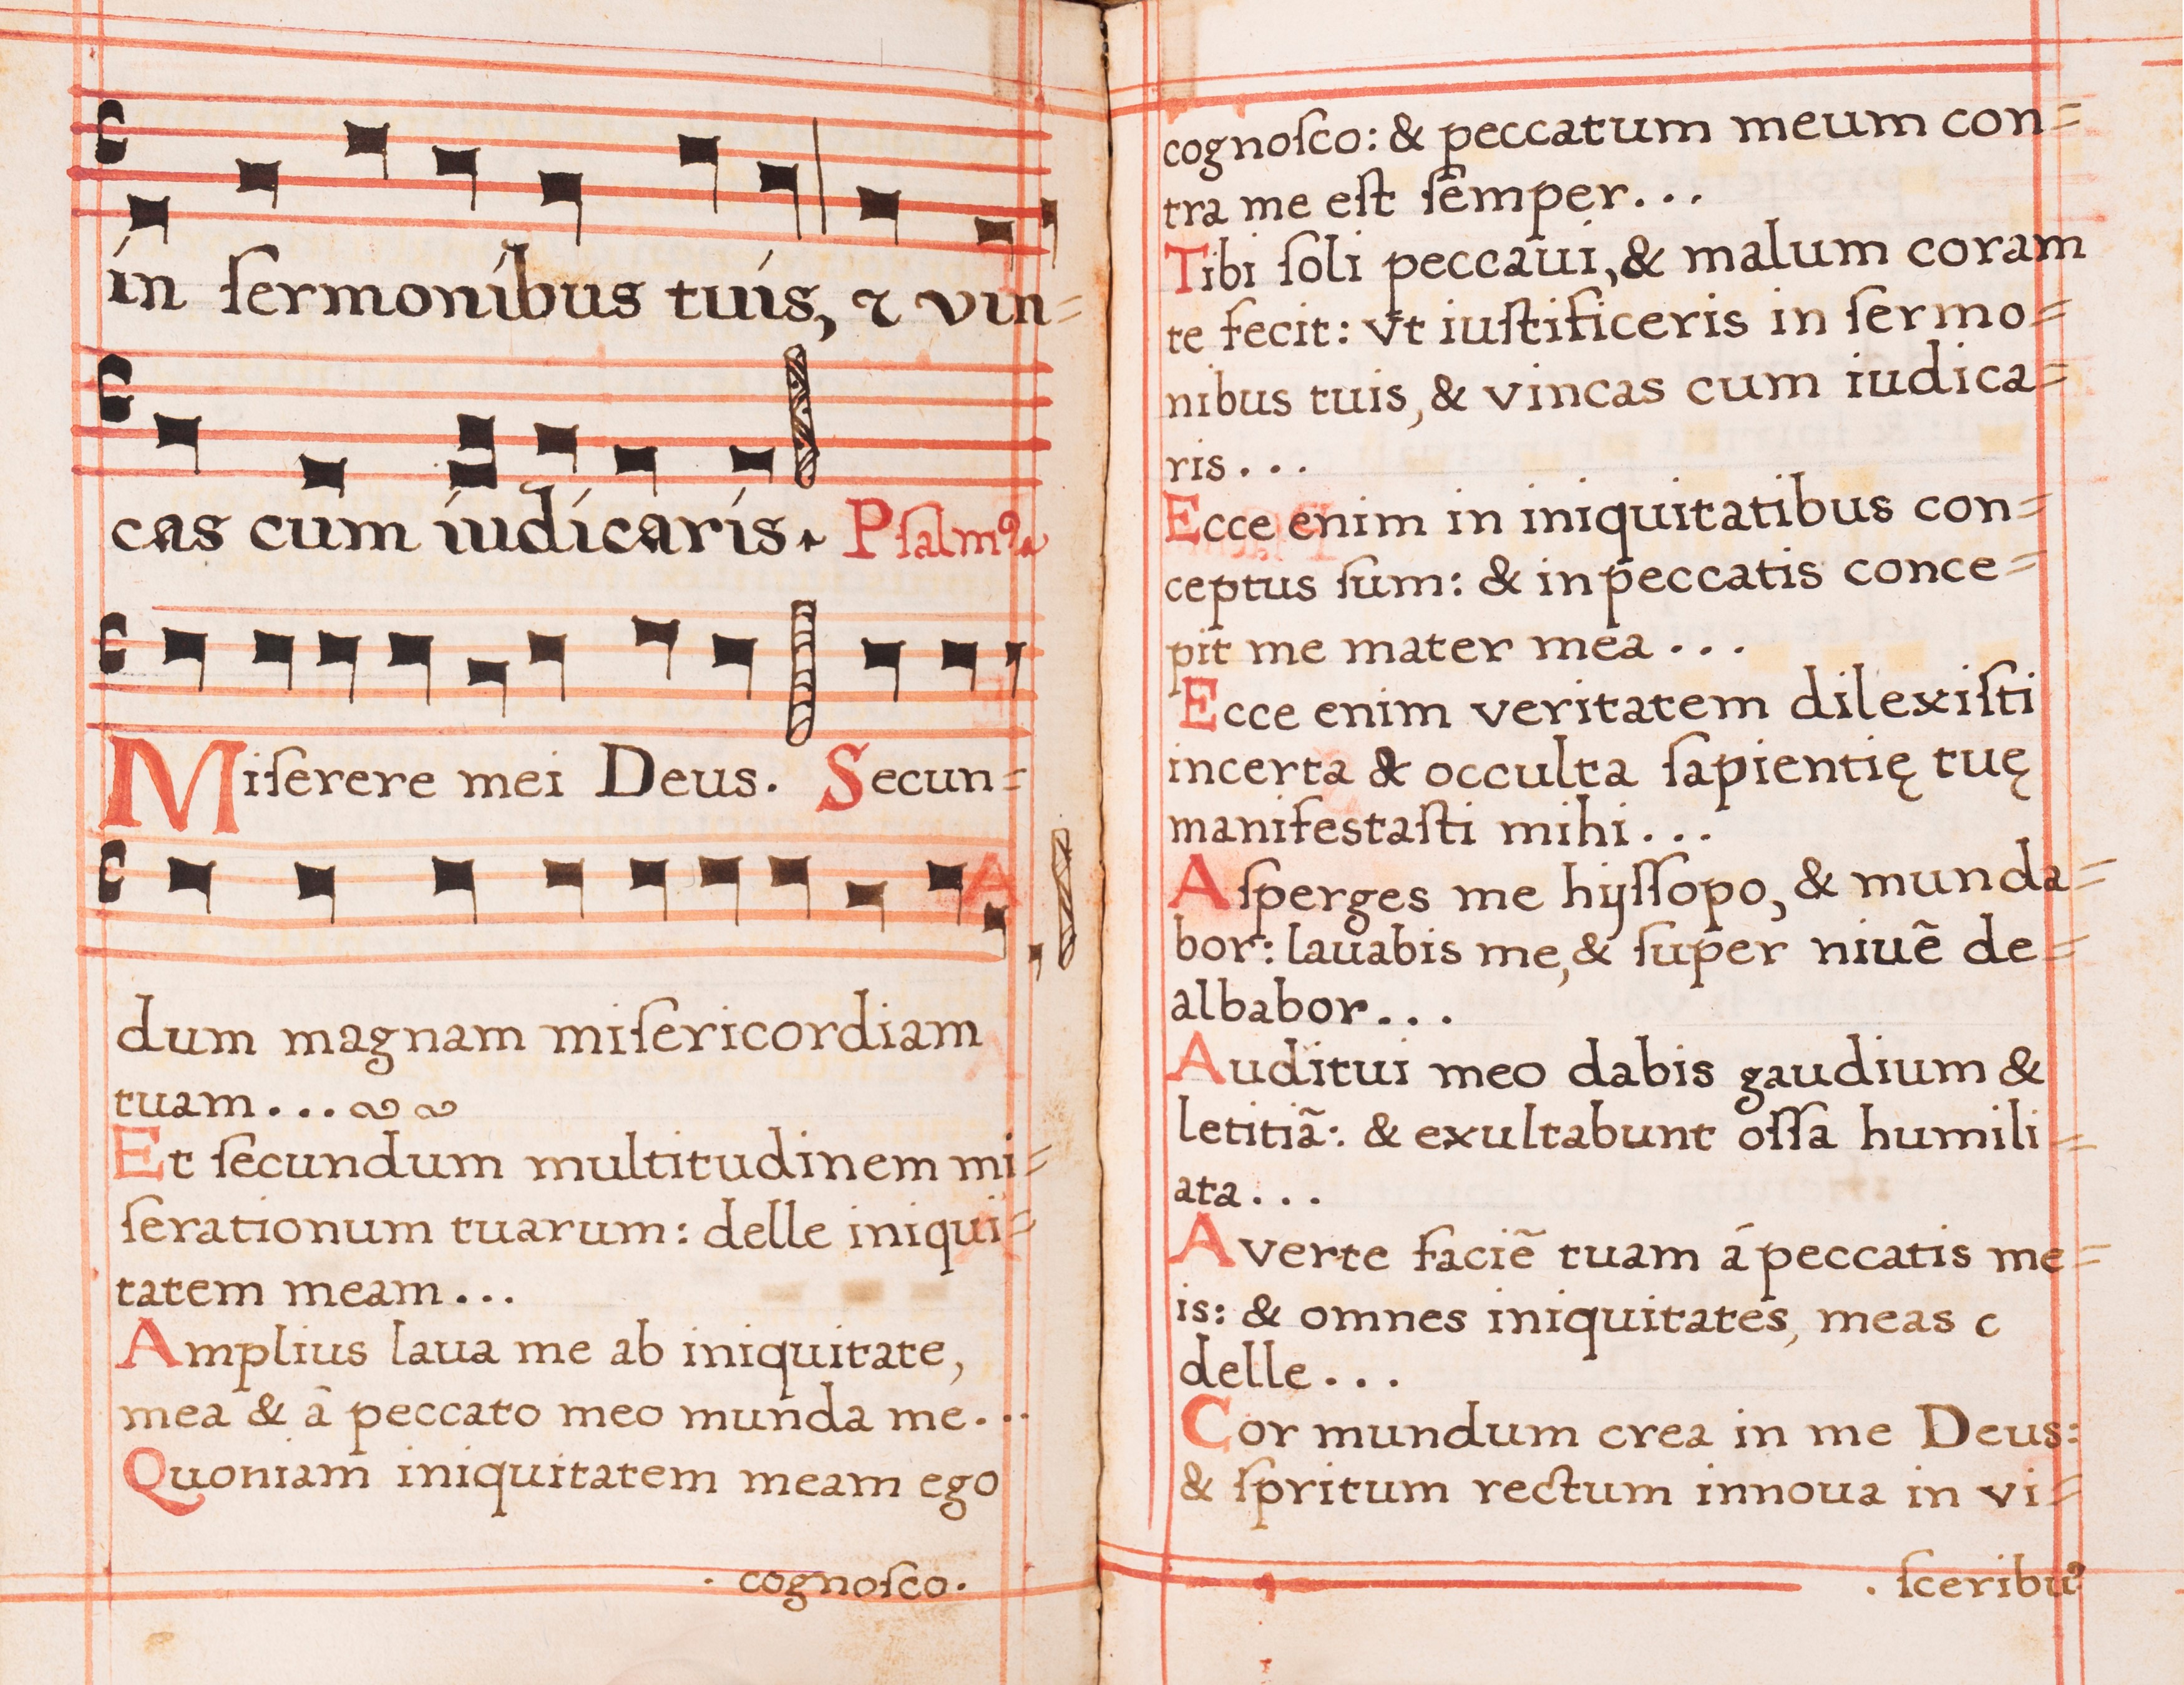 in ſermonibus tuis, ⁊ vin=
cas cum iudicaris. Pſalmꝰ.
Miſerere mei Deus. Secun=
dum magnam miſericordiam
tuam...
Et ſecundum multitudinem mi=
ſerationum tuarum: delle iniqui=
tatem meam...
Amplius laua me ab iniquitate,
mea & â peccato meo munda me...
Quoniam iniquitatem meam ego
. cognoſco.
cognoſco: & peccatum meum con=
tra me eſt ſemper...
Tibi ſoli peccaui, & malum coram
te fecit: vt iuſtificeris in ſermo=
nibus tuis, & vincas cum iudica=
ris...
Ecce enim in iniquitatibus con=
ceptus ſum: & in peccatis conce=
pit me mater mea...
Ecce enim veritatem dilexiſti
incerta & occulta ſapientię tuę
manifestaſti mihi...
Aſperges me hyſſopo, & munda=
bor: lauabis me, & ſuper niuẽ de=
albabor...
Auditui meo dabis gaudium &
letitiã: & exultabunt oſſa humili=
ata...
Averte faciẽ tuam á peccatis me=
is: & omnes iniquitates, meas c
delle...
Cor mundum crea in me Deus:
& ſpritum rectum innoua in vi=
. ſceribuꝰ